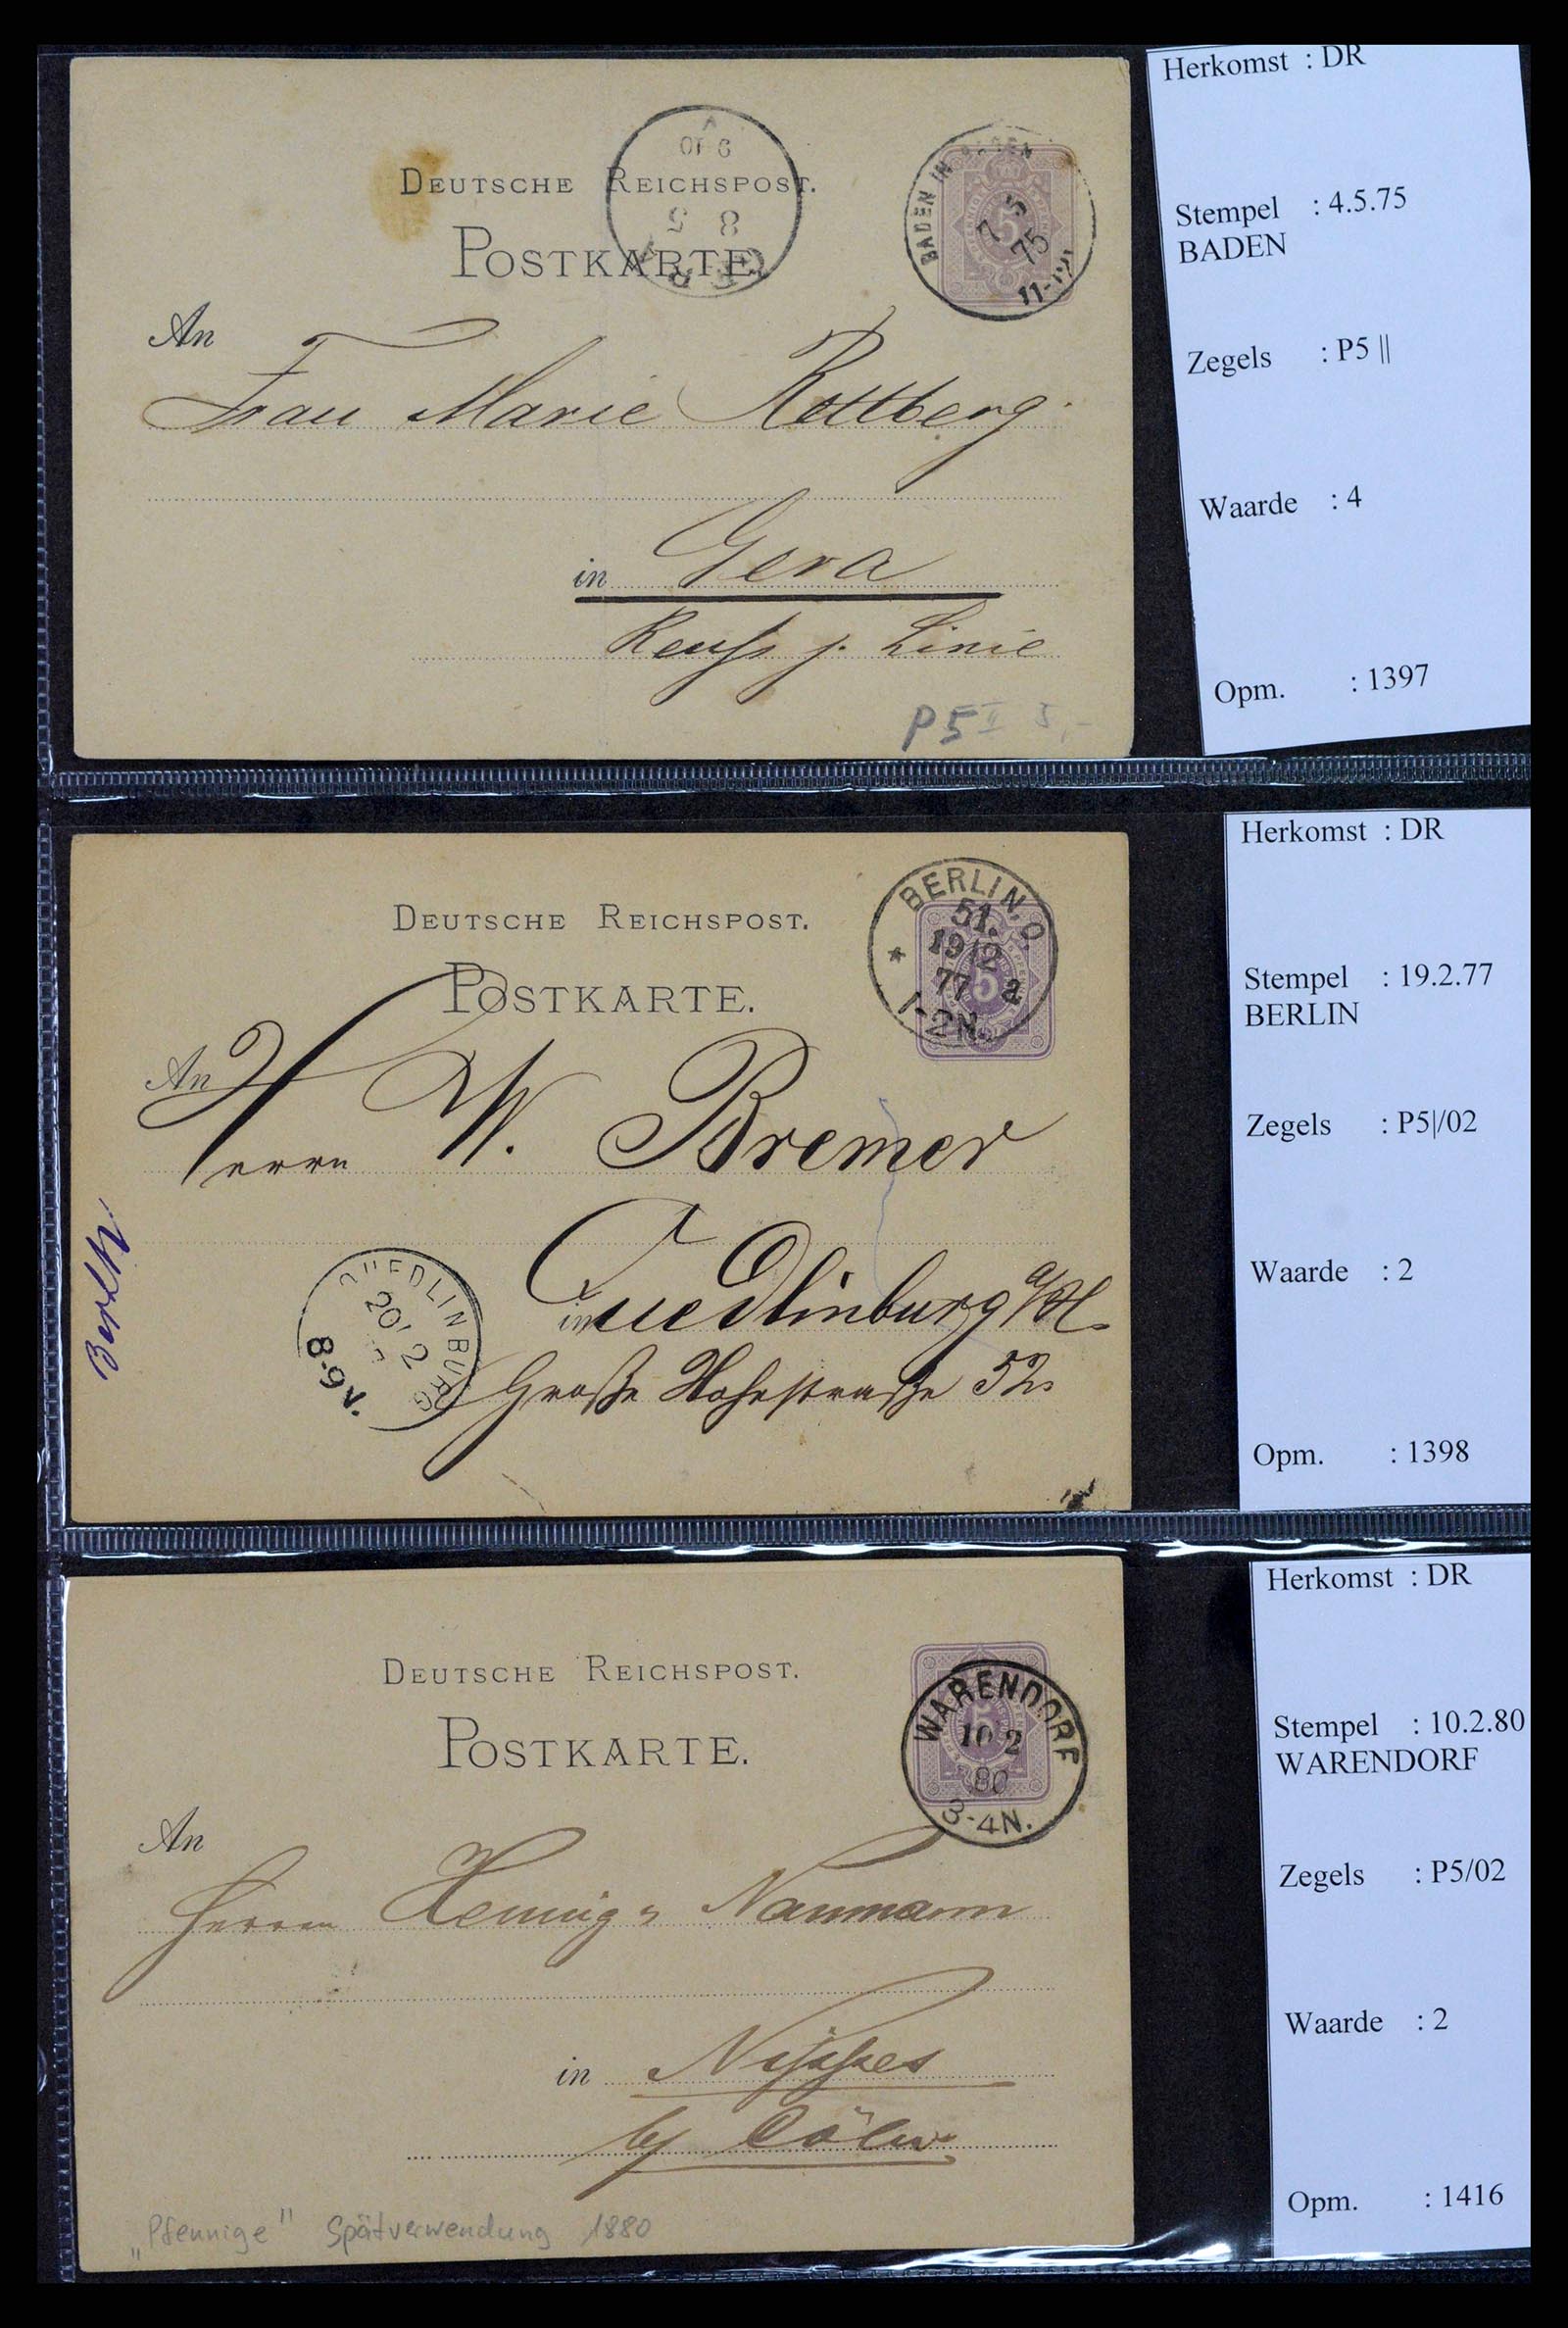 DEUTSCHE REICHSPOST.
POSTKARTE.
BADEN IN BADEN
7 5
75
11-12
8 5
GERA
An
Frau Marie Rettberg.
in Gera
Reuss j. Linie
P5 II 3,-
Herkomst : DR
Stempel : 4.5.75
BADEN
Zegels : P5 ||
Waarde : 4
Opm. : 1397
DEUTSCHE REICHSPOST.
POSTKARTE.
BERLIN, O.
51.
19/2
77 a
1-2N.
An
Herrn W. Bremer
in Quedlinburg a/H.
Große Hohestraße 52.
QUEDLINBURG
20 2
8-9V.
Herkomst : DR
Stempel : 19.2.77
BERLIN
Zegels : P5|/02
Waarde : 2
Opm. : 1398
DEUTSCHE REICHSPOST.
POSTKARTE.
WARENDORF
10 2
80
3-4N.
An
Herrn Naumann
in Nippes
by Cöln
„Pfennige" Spätverwendung 1880
Herkomst : DR
Stempel : 10.2.80
WARENDORF
Zegels : P5/02
Waarde : 2
Opm. : 1416